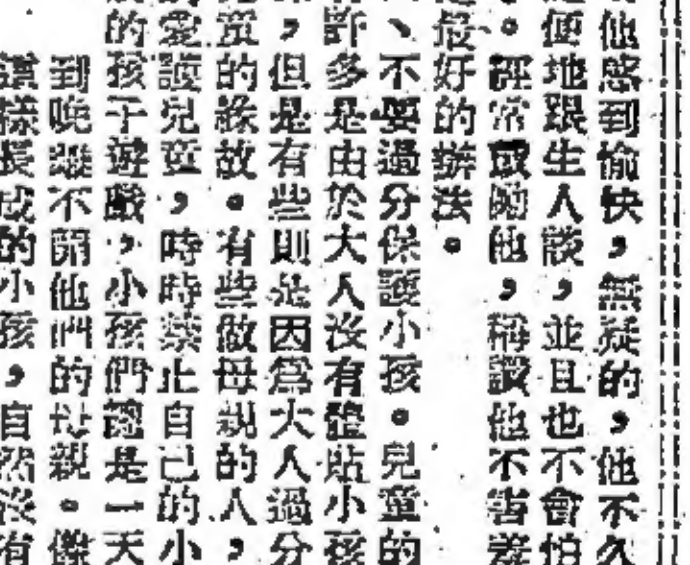 他感到愉快，無疑的，他不久
便地跟生人談，並且也不會怕
。評常鼓勵他，稱讚他不害羞
最好的辦法。
、不要過分保護小孩。兒童的
許多是由於大人沒有體貼小孩
，但是有些則是因為大人過分
童的緣故。有些做母親的人，
愛護兒童，時時禁止自己的小
的孩子遊戲，小孩們認是一天
到晚離不開他們的母親。像
這樣長成的小孩，自然沒有